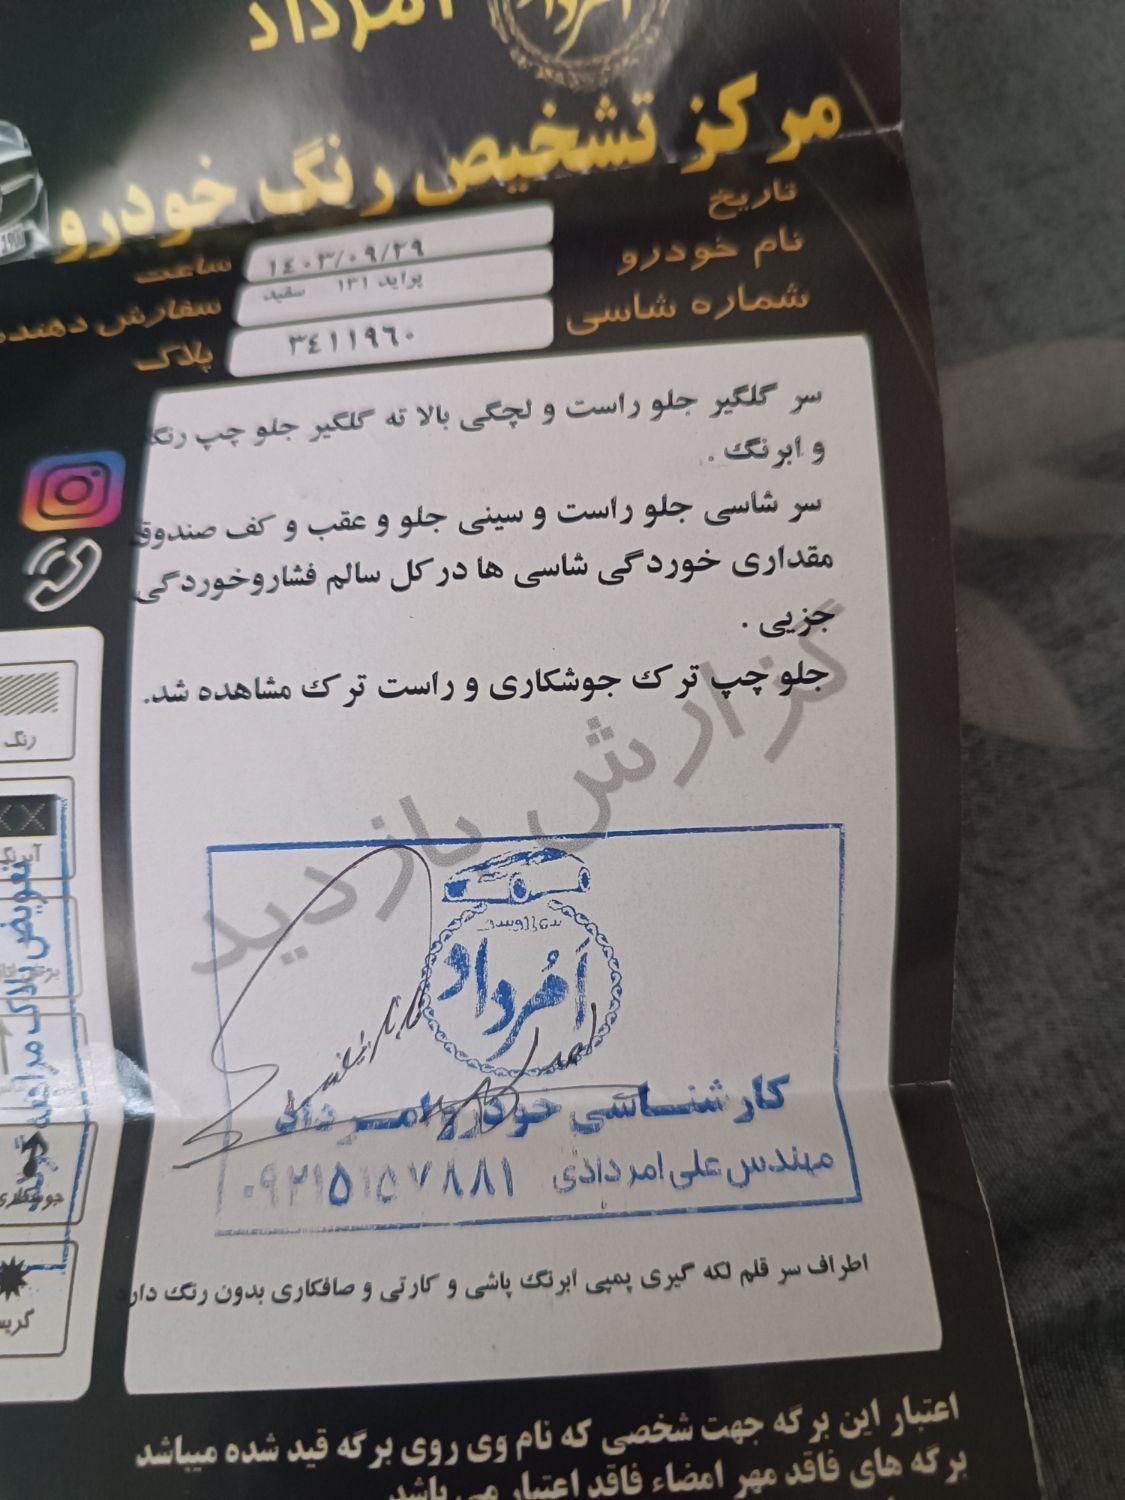 امرداد
امرداد
مرکز تشخیص رنگ خودرو
تاریخ ۱۴۰۳/۰۹/۲۹ ساعت
نام خودرو پراید ۱۳۱ سفید سفارش دهنده
شماره شاسی ۳۴۱۱۹۶۰ پلاک
سر گلگیر جلو راست و لچگی بالا ته گلگیر جلو چپ رنگ
و ابرنگ .
سر شاسی جلو راست و سینی جلو و عقب و کف صندوق
مقداری خوردگی شاسی ها درکل سالم فشاروخوردگی
جزیی .
جلو چپ ترک جوشکاری و راست ترک مشاهده شد.
گزارش بازدید
رنگ
آبرنگ
تعویض پلاک
جوشکاری
امرداد
کارشناسی خودرو امرداد
مهندس علی امردادی ۰۹۲۱۵۱۵۷۸۸۱
اطراف سر قلم لکه گیری پمپی ابرنگ پاشی و کارتی و صافکاری بدون رنگ دارد
اعتبار این برگه جهت شخصی که نام وی روی برگه قید شده میباشد
برگه های فاقد مهر امضاء فاقد اعتبار می باشد